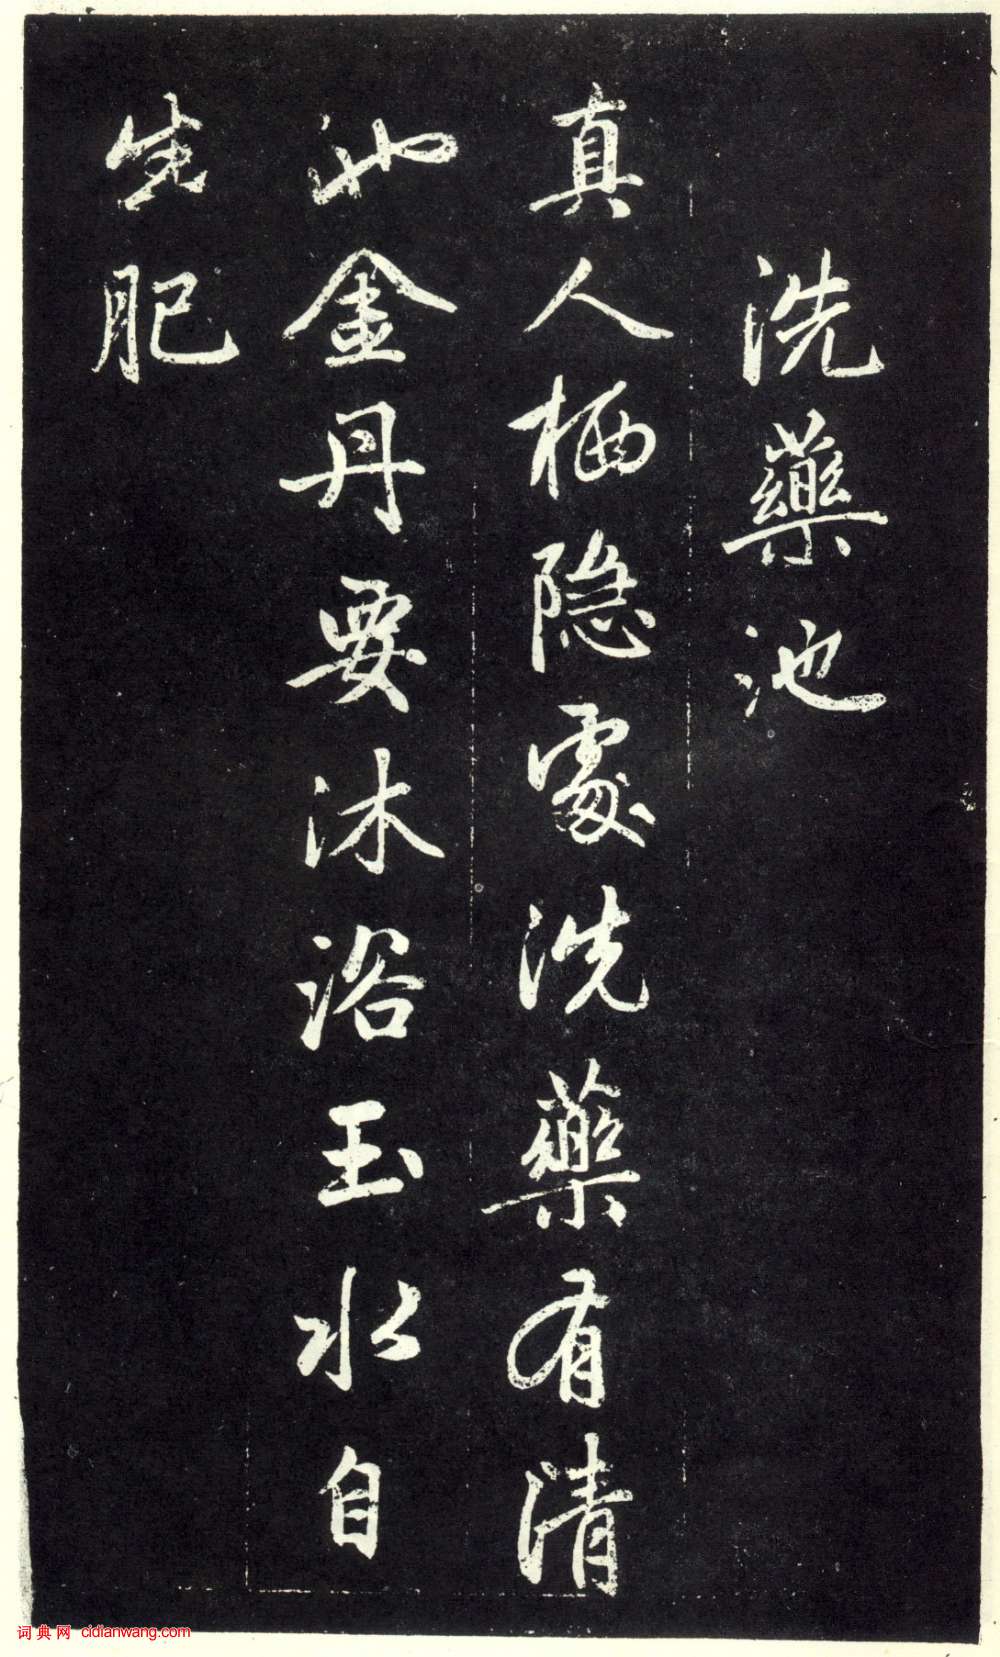 洗藥池
真人栖隐處洗藥有清
池金丹要沐浴玉水自
生肥
词典网 cidianwang.com